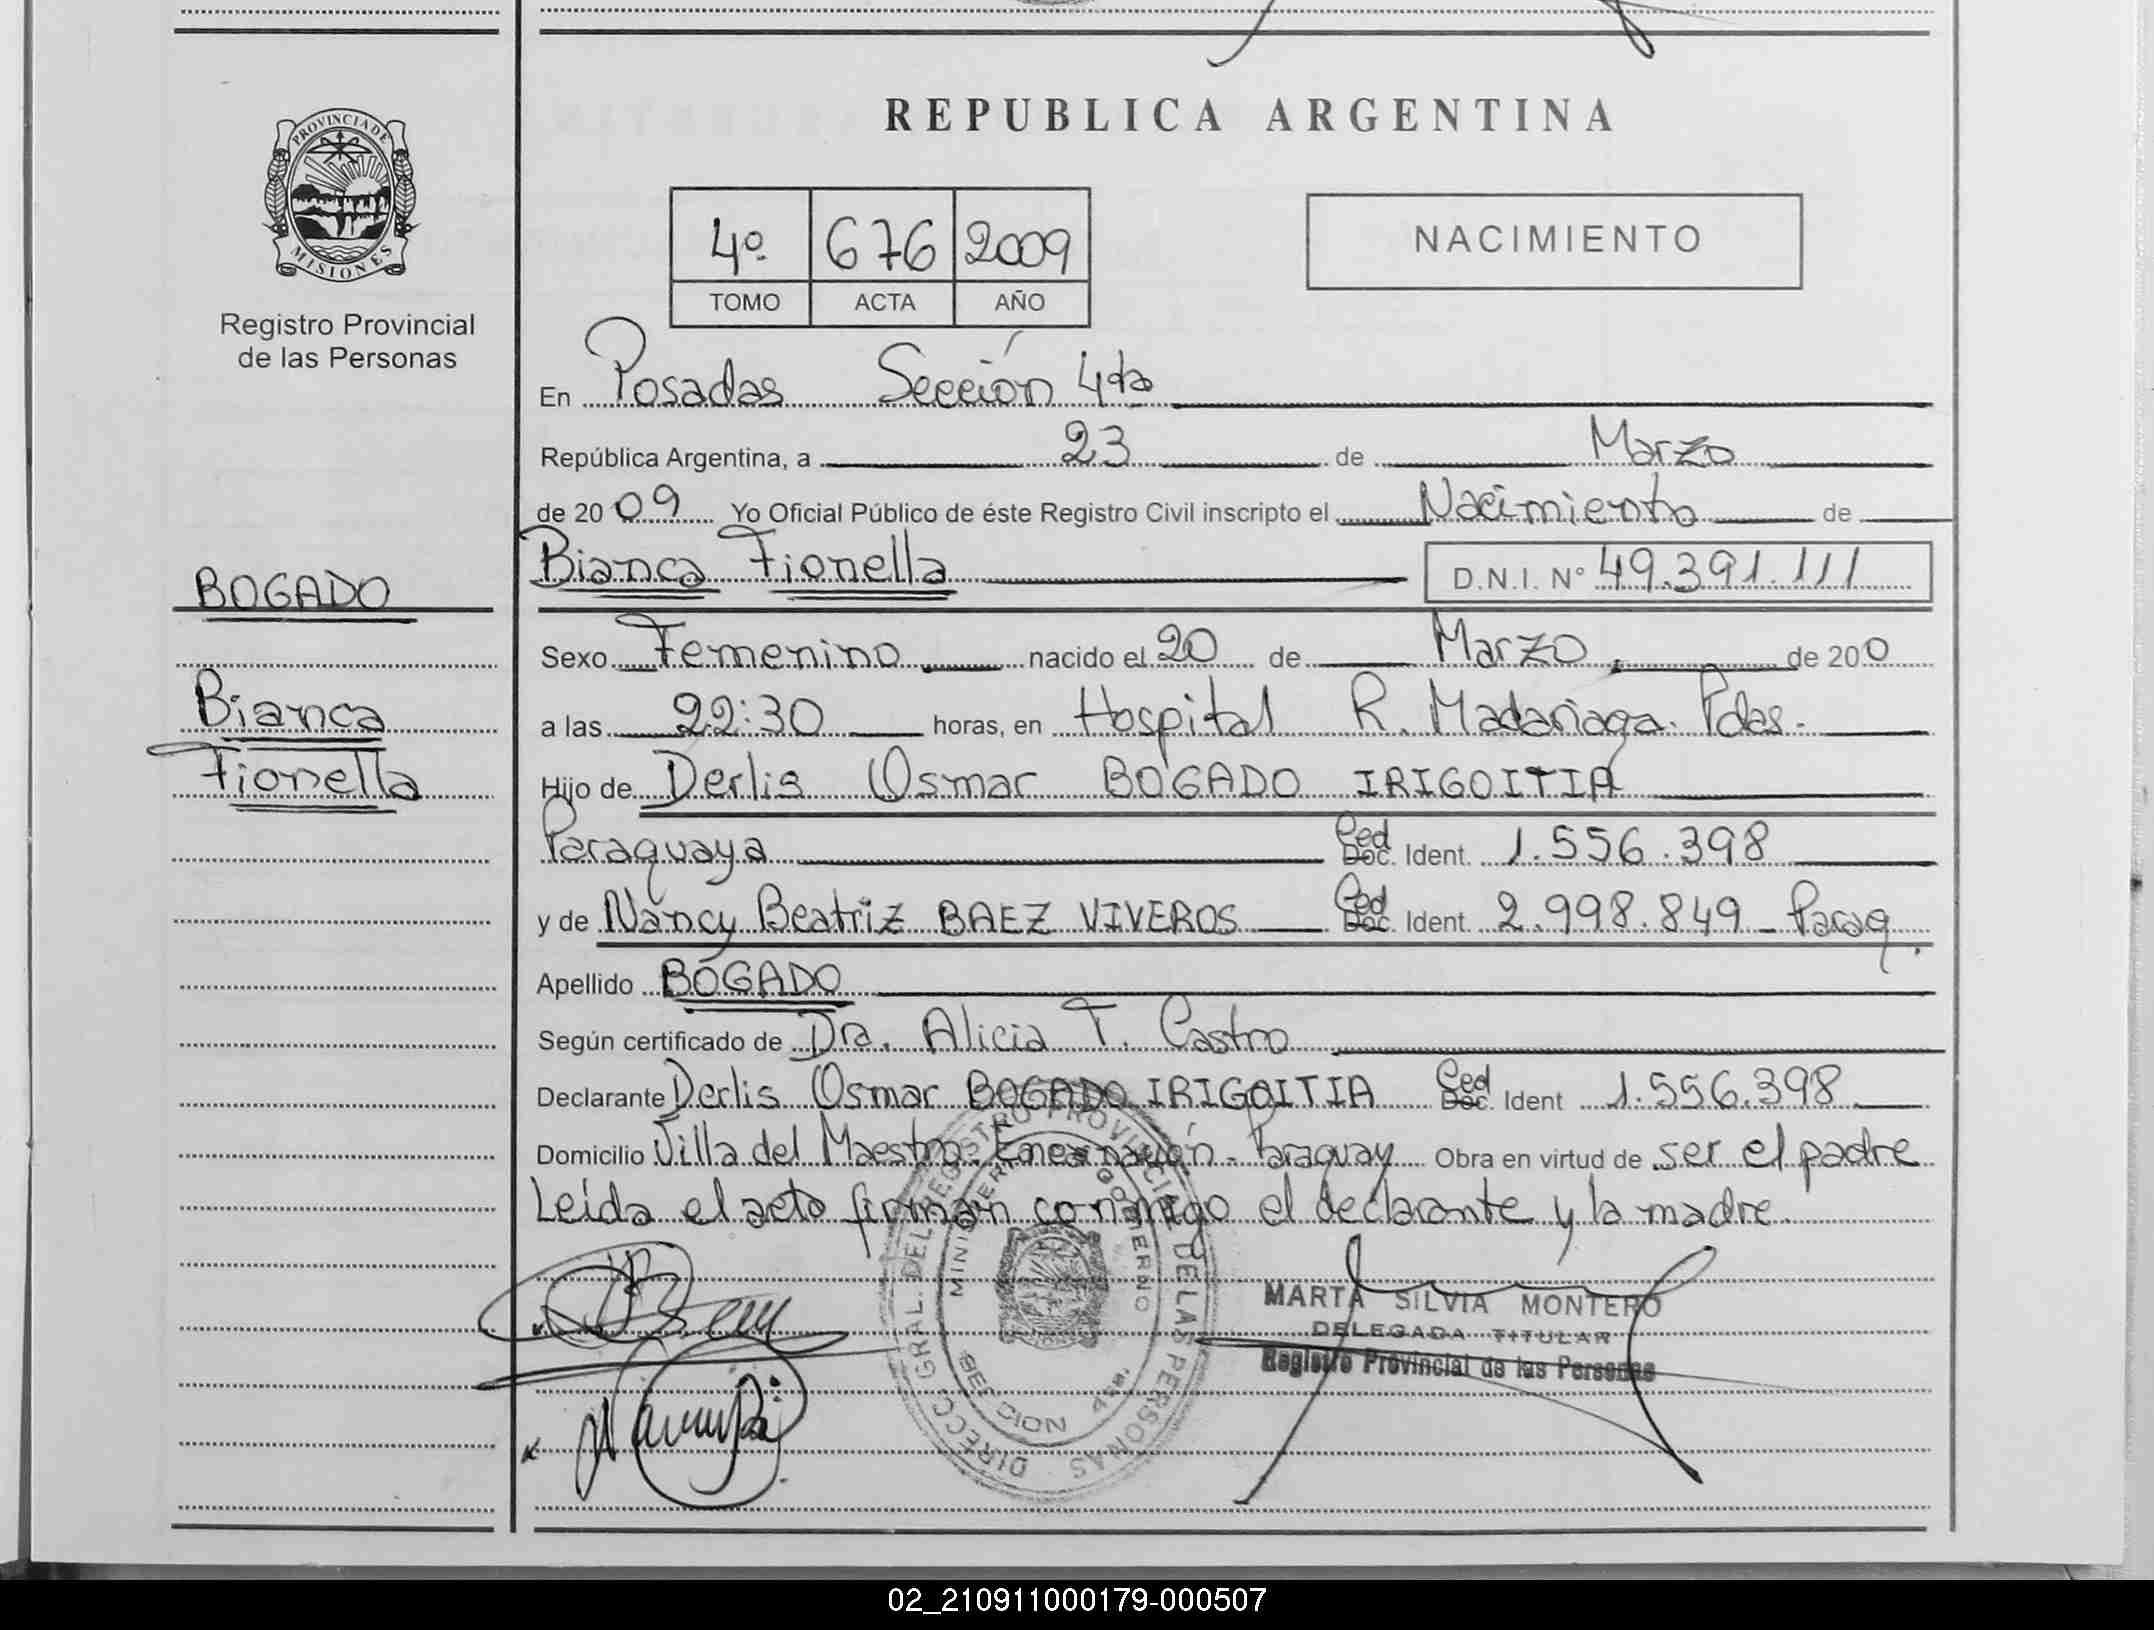 REPUBLICA ARGENTINA
PROVINCIA DE
MISIONES
Registro Provincial
de las Personas
4º 676 2009
TOMO ACTA AÑO
NACIMIENTO
En Posadas Sección 4ta
República Argentina, a 23 de Marzo
de 2009 Yo Oficial Público de éste Registro Civil inscripto el Nacimiento de
Bianca Fionella D.N.I. Nº 49.391.111
BOGADO
Sexo Femenino nacido el 20 de Marzo de 200
Bianca
a las 22:30 horas, en Hospital R. Madariaga. Pdas.
Fionella
Hijo de Derlis Osmar BOGADO IRIGOITIA
Paraguaya Ced Doc. Ident. 1.556.398
y de Nancy Beatriz BAEZ VIVEROS Ced Doc. Ident. 2.998.849 - Parag.
Apellido BOGADO
Según certificado de Dra. Alicia T. Castro
Declarante Derlis Osmar BOGADO IRIGOITIA Ced Doc. Ident 1.556.398
Domicilio Villa del Maestro. Encarnación - Paraguay Obra en virtud de ser el padre
Leída el acto firman conmigo el declarante y la madre.
DIRECC. GRAL. DEL REGISTRO PROVINCIAL DE LAS PERSONAS
MINISTERIO GOBIERNO
SECCION 4ta.
MARTA SILVIA MONTERO
DELEGADA TITULAR
Registro Provincial de las Personas
02_210911000179-000507